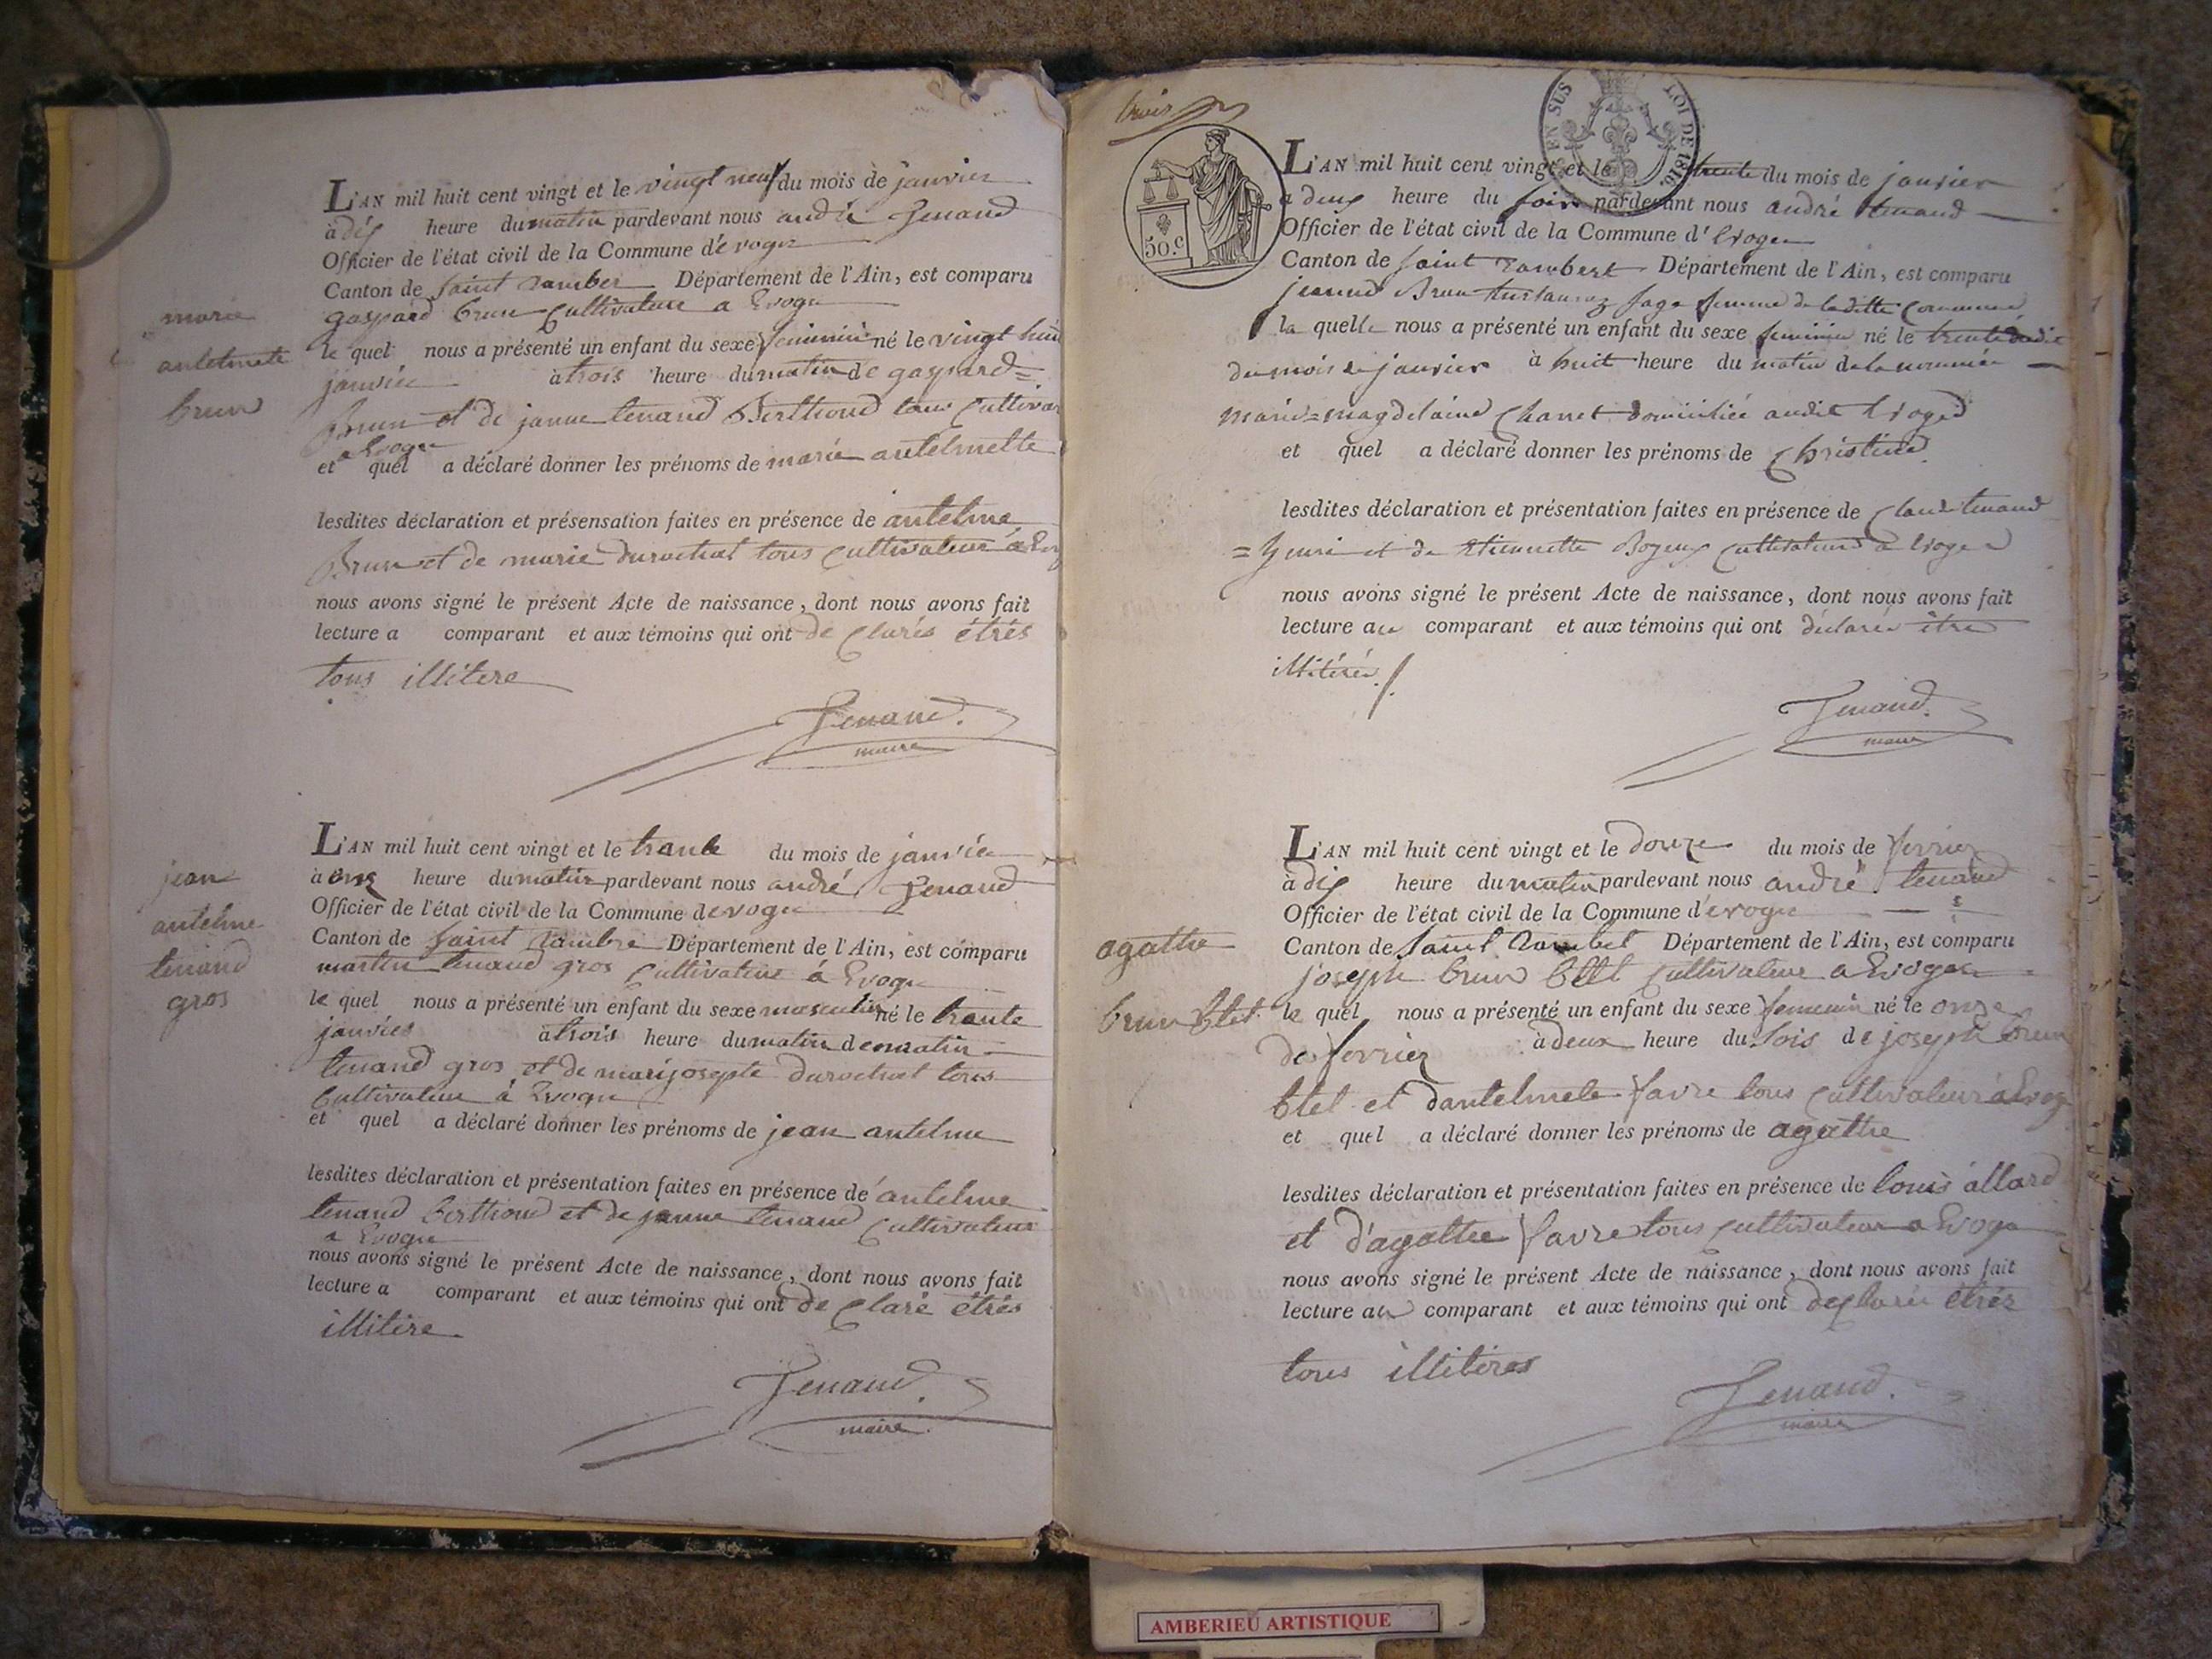 marie
antelmette
brun
L'AN mil huit cent vingt et le vingt neuf du mois de janvier
à dix heure du matin pardevant nous andré Tenand
Officier de l'état civil de la Commune d'évoge
Canton de Saint Ramber Département de l'Ain, est comparu
gaspard brun Cultivateur a Evoge
le quel nous a présenté un enfant du sexe féminin né le vingt huit
janvier à trois heure du matin de gaspard =
Brun et de janne tenand Berthoud tous Cultivat
a Evoge
et quel a déclaré donner les prénoms de marie antelmette
lesdites déclaration et présensation faites en présence de antelme
Brun et de marie durochat tous Cultivateur à Evog
nous avons signé le présent Acte de naissance, dont nous avons fait
lecture a comparant et aux témoins qui ont de Clarés étrés
tous illitere
Tenand.
maire
jean
antelme
tenand
gros
L'AN mil huit cent vingt et le trante du mois de janvier
à onze heure du matin pardevant nous andré Tenand
Officier de l'état civil de la Commune d evoge
Canton de Saint Rambre Département de l'Ain, est comparu
martin tenand gros Cultivateur à Evoge
le quel nous a présenté un enfant du sexe masculin né le trante
janvier à trois heure du matin de matin
tenand gros et de marijosepte durochat tous
Cultivateur à Evoge
et quel a déclaré donner les prénoms de jean antelme
lesdites déclaration et présentation faites en présence de antelme
tenand berthoud et de janne tenand Cultivateur
a Evoge
nous avons signé le présent Acte de naissance, dont nous avons fait
lecture a comparant et aux témoins qui ont de Claré étrés
illitére
Tenand.
maire
trois
50.c
EN SUS
LOI DE 1816.
L'AN mil huit cent vingt et le trente du mois de janvier
à deux heure du soir pardevant nous andré tenand
Officier de l'état civil de la Commune d'Evoges
Canton de Saint rambert Département de l'Ain, est comparu
jeanne Brun sage femme de laditte Commune
la quelle nous a présenté un enfant du sexe feminin né le trente dudit
du mois de janvier à huit heure du matin de la nommée
marie=magdelaine Chanet domiciliée audit Evoges
et quel a déclaré donner les prénoms de Christine
lesdites déclaration et présentation faites en présence de Claude tenand
= et de Etiennette Bozeux cultivateurs a Evoges
nous avons signé le présent Acte de naissance, dont nous avons fait
lecture au comparant et aux témoins qui ont déclarés être
illitérés ./.
Tenand.
maire
agathe
brun btet
L'AN mil huit cent vingt et le douze du mois de fevrier
à dix heure du matin pardevant nous andré tenand
Officier de l'état civil de la Commune d'evoge
Canton de Saint Rambet Département de l'Ain, est comparu
joseph brun btet Cultivateur a Evoges
le quel nous a présenté un enfant du sexe femenin né le onze
de fevrier à deux heure du soir de joseph brun
btet et dantelmete favre tous Cultivateur à Evoge
et quel a déclaré donner les prénoms de agathe
lesdites déclaration et présentation faites en présence de louis allard
et d'agathe favre tous Cultivateur a Evoge
nous avons signé le présent Acte de naissance, dont nous avons fait
lecture au comparant et aux témoins qui ont declarés étrés
tous illitéres
Tenand.
maire
AMBERIEU ARTISTIQUE